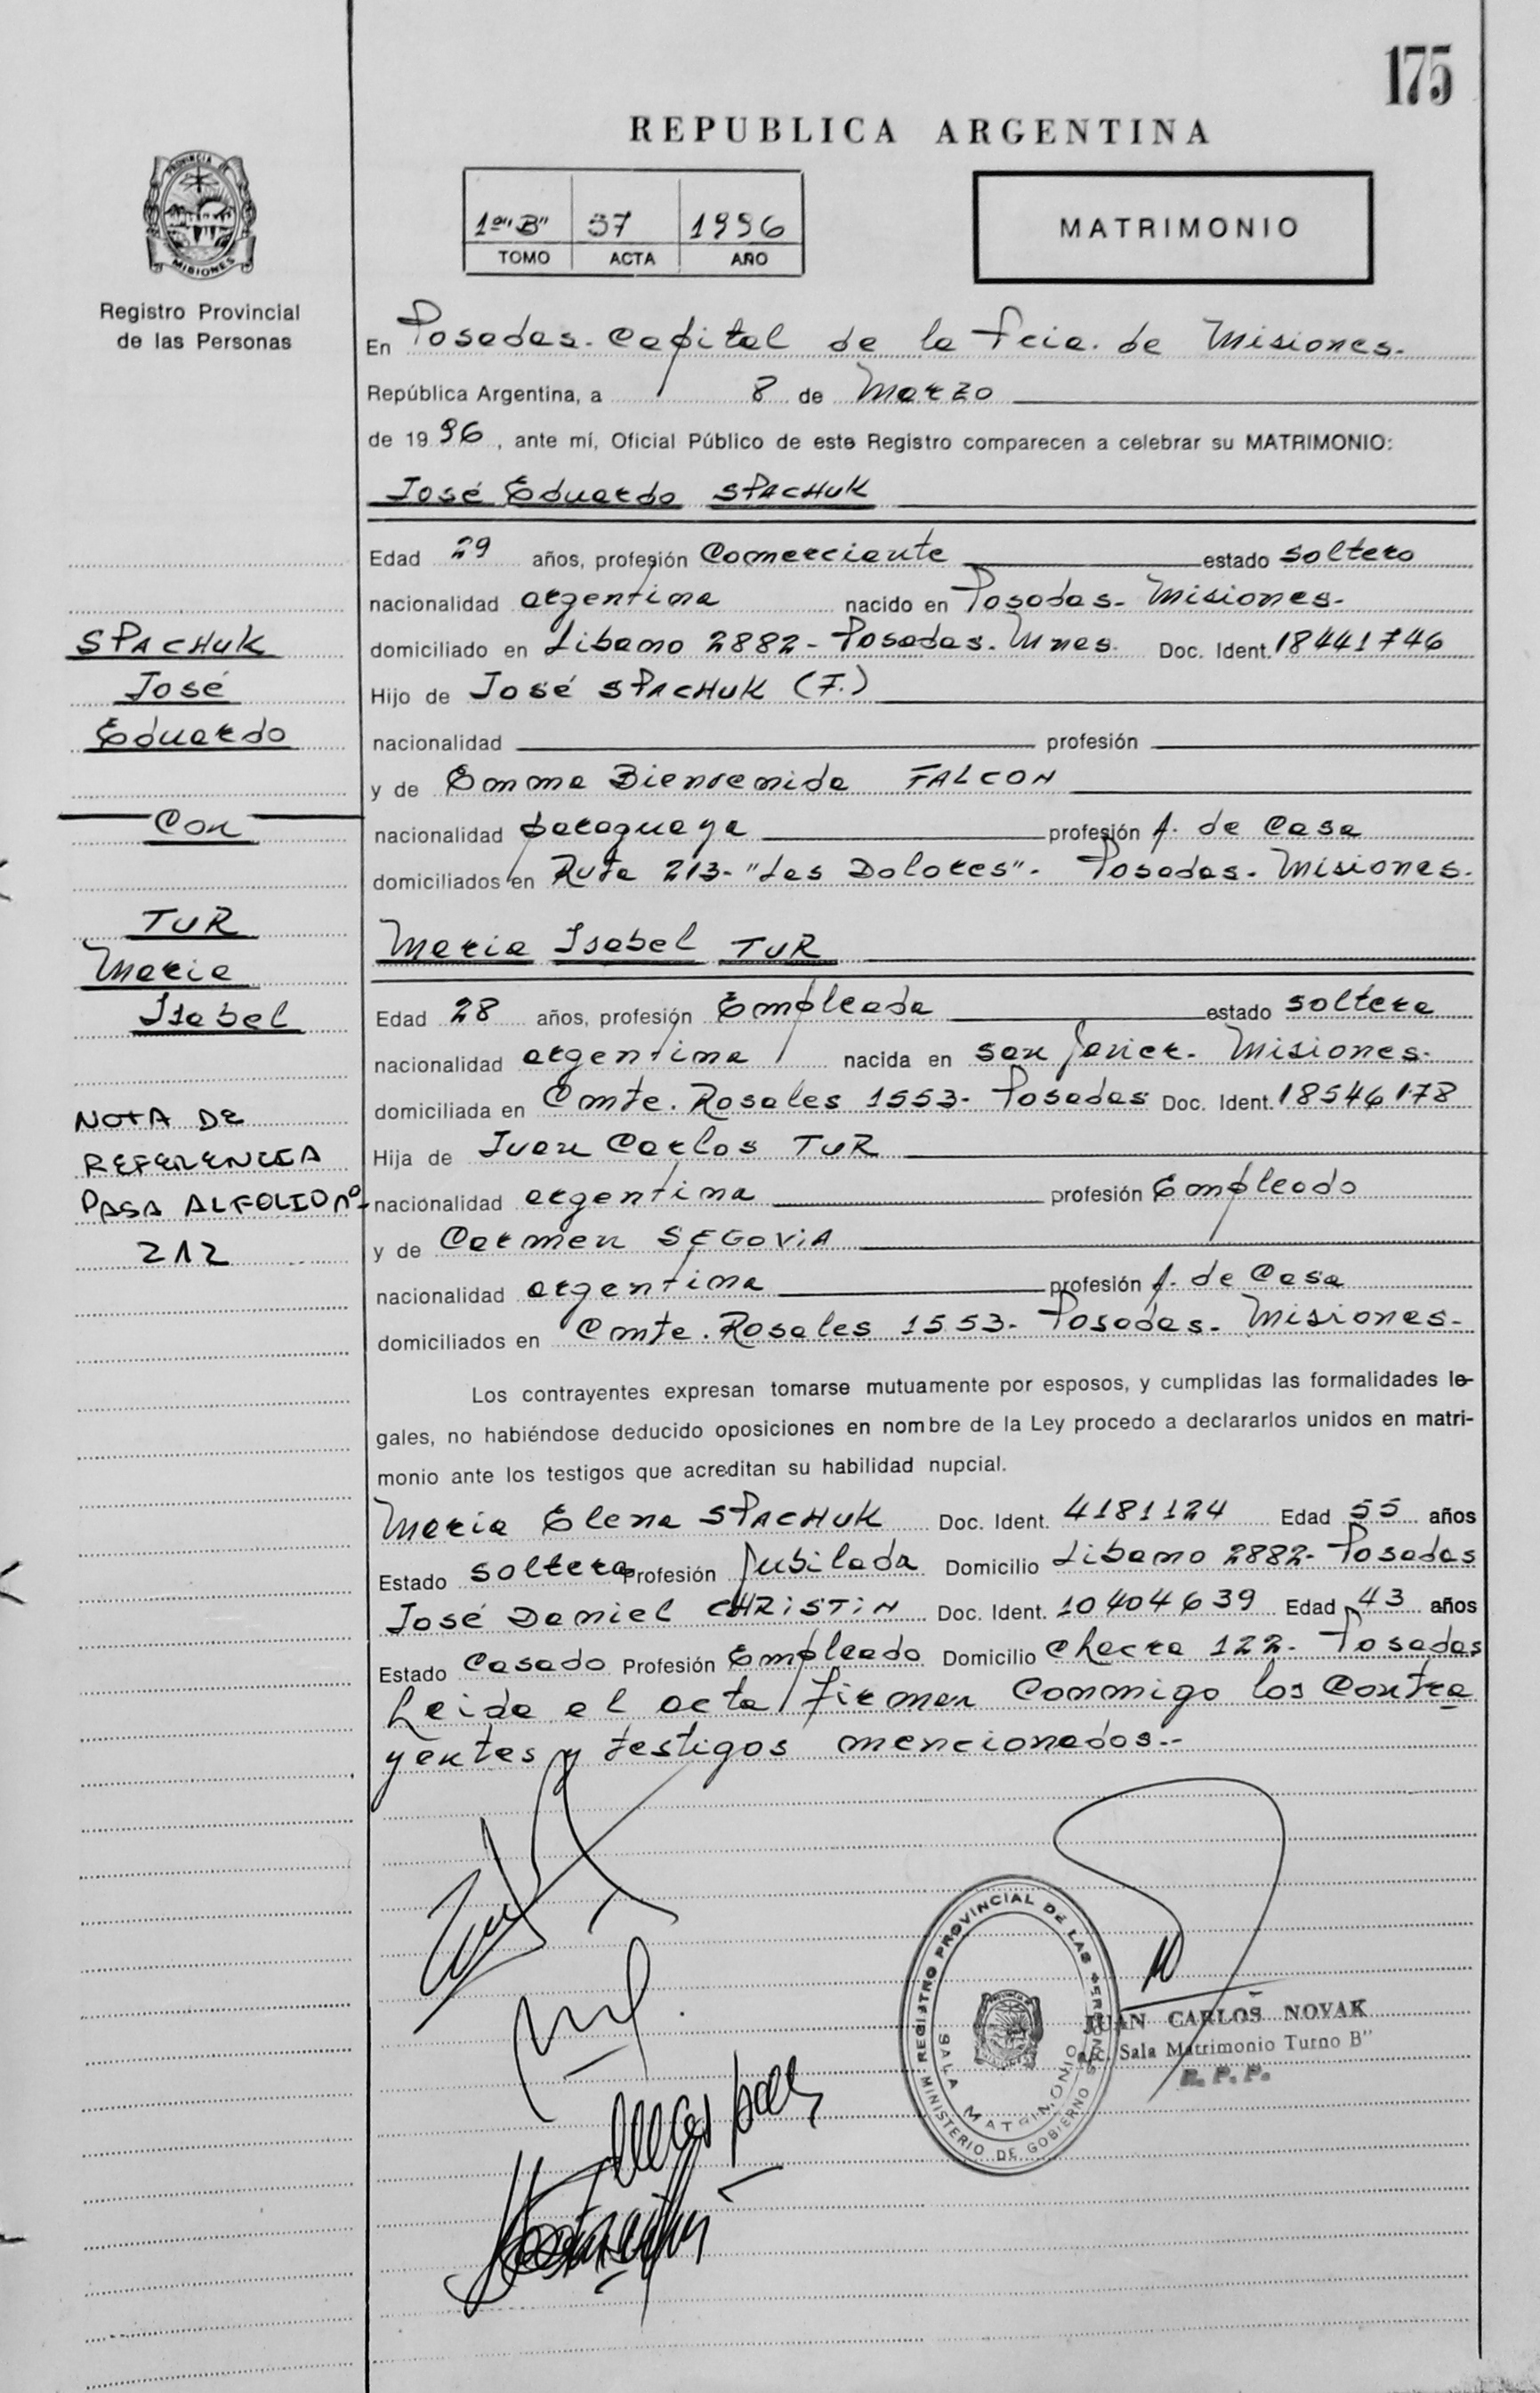 175
REPUBLICA ARGENTINA
PROVINCIA DE
MISIONES
Registro Provincial
de las Personas
1º "B" 57 1996
TOMO ACTA AÑO
MATRIMONIO
En Posadas - Capital de la Pcia. de Misiones.
República Argentina, a 8 de Marzo
de 1996, ante mí, Oficial Público de este Registro comparecen a celebrar su MATRIMONIO:
José Eduardo SPACHUK
Edad 29 años, profesión Comerciante estado soltero
nacionalidad argentina nacido en Posadas - Misiones.
domiciliado en Libano 2882 - Posadas. Mnes. Doc. Ident. 18441746
Hijo de José SPACHUK (F.)
nacionalidad profesión
y de Emma Bienvenida FALCON
nacionalidad paraguaya profesión A. de Casa
domiciliados en Ruta 213 - "Las Dolores" - Posadas - Misiones.
Maria Isabel TUR
Edad 28 años, profesión Empleada estado soltera
nacionalidad argentina nacida en San Javier - Misiones.
domiciliada en Cmte. Rosales 1553 - Posadas Doc. Ident. 18546178
Hija de Juan Carlos TUR
nacionalidad argentina profesión Empleado
y de Carmen SEGOVIA
nacionalidad argentina profesión A. de Casa
domiciliados en Cmte. Rosales 1553 - Posadas - Misiones.
Los contrayentes expresan tomarse mutuamente por esposos, y cumplidas las formalidades le-
gales, no habiéndose deducido oposiciones en nombre de la Ley procedo a declararlos unidos en matri-
monio ante los testigos que acreditan su habilidad nupcial.
Maria Elena SPACHUK Doc. Ident. 4181124 Edad 55 años
Estado soltera Profesión Jubilada Domicilio Libano 2882 - Posadas
José Daniel CHRISTIN Doc. Ident. 10404639 Edad 43 años
Estado Casado Profesión Empleado Domicilio Chacra 122 - Posadas
Leida el acta firman conmigo los contra
yentes y testigos mencionados.-
SPACHUK
José
Eduardo
Con
TUR
Maria
Isabel
NOTA DE
REFERENCIA
PASA AL FOLIO Nº
212
REGISTRO PROVINCIAL DE LAS PERSONAS
SALA MATRIMONIO
MINISTERIO DE GOBIERNO
JUAN CARLOS NOVAK
a/c. Sala Matrimonio Turno B"
R. P. P.